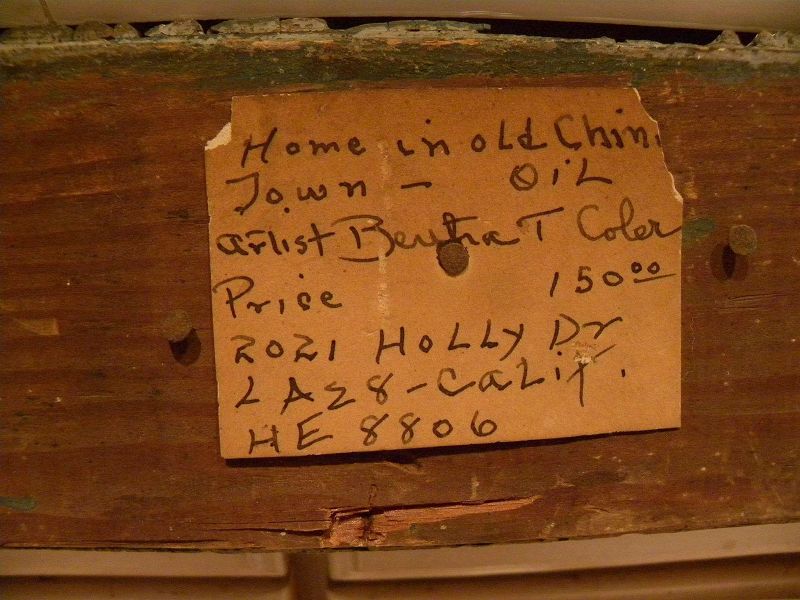 Home in old Chin
Town - OiL
artist Bertha T Coler
Price 150.00
2021 HoLLy Dr
LA 28 - CaLif.
HE 8806